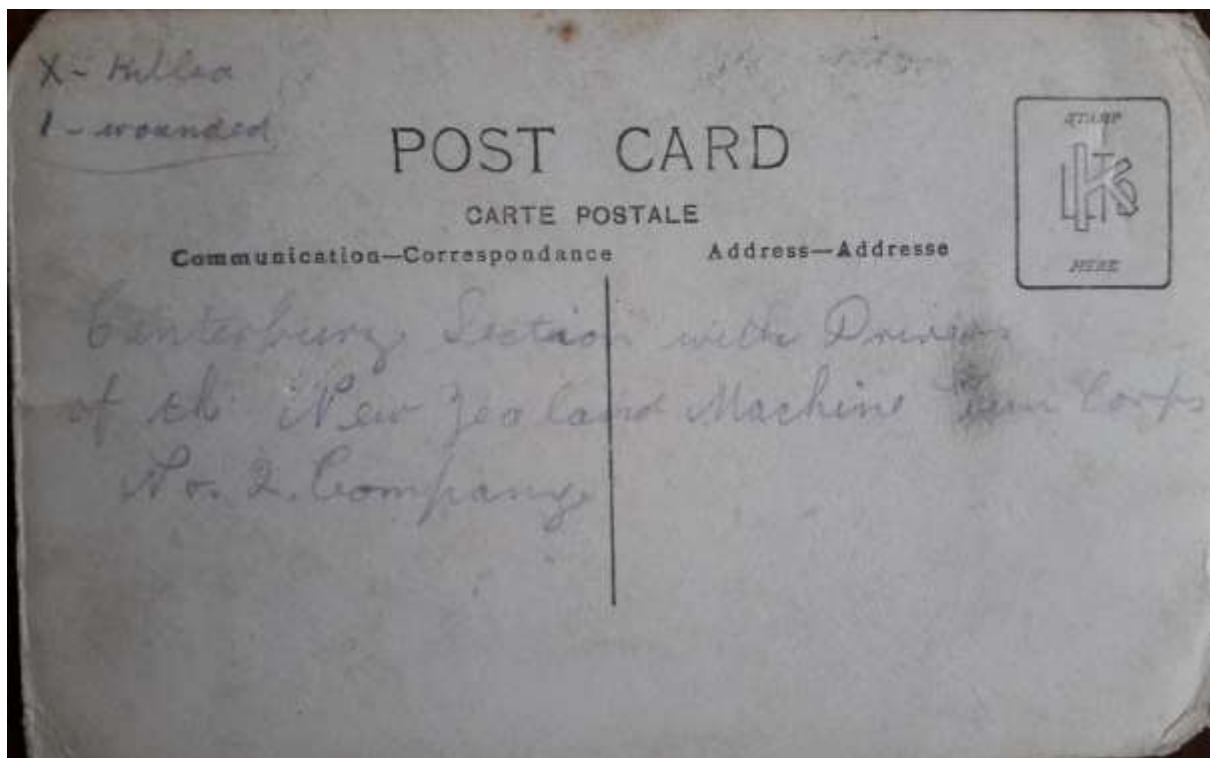 X - Killed
1 - wounded
POST CARD
CARTE POSTALE
Communication—Correspondance
Address—Addresse
STAMP
HERE
Canterbury Section with Drivers
of th New Zealand Machine Gun Corps
No. 2. Company